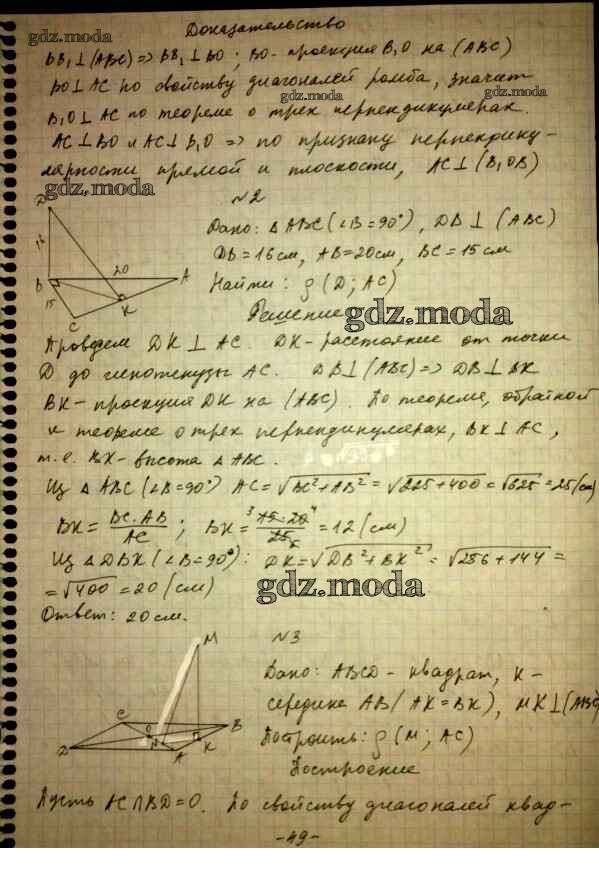 Доказательство
gdz.moda
BB₁⊥(ABC)=>BB₁⊥BO; BO-проекция B₁O на (ABC)
BO⊥AC по свойству диагоналей ромба, значит
gdz.moda
gdz.moda
B₁O⊥AC по теореме о трех перпендикулярах.
AC⊥BO и AC⊥B₁O => по признаку перпендику-
лярности прямой и плоскости, AC⊥(B₁OB)
gdz.moda
№2
D
Дано: △ABC(∠B=90°), DB⊥(ABC)
16
20
DB=16см, AB=20см, BC=15см
B
A
Найти: ρ(D; AC)
15
K
C
Решение
gdz.moda
Проведем DK⊥AC. DK-расстояние от точки
D до гипотенузы AC. DB⊥(ABC)=>DB⊥BK
BK-проекция DK на (ABC). По теореме, обратной
к теореме о трех перпендикулярах, BK⊥AC,
т.е. BK-высота △ABC.
Из △ABC(∠B=90°) AC=√BC²+AB²=√225+400=√625=25(см)
BK=BC·AB/AC; BK=³15·20⁴/25₅=12(см)
Из △DBK(∠B=90°): DK=√DB²+BK²=√256+144=
=√400=20(см)
gdz.moda
Ответ: 20см.
M
№3
Дано: ABCD-квадрат, K-
C
B
середина AB(AK=BK), MK⊥(ABC)
O
N
K
D
A
Построить: ρ(M; AC)
Построение
Пусть AC∩BD=O. По свойству диагоналей квад-
-49-